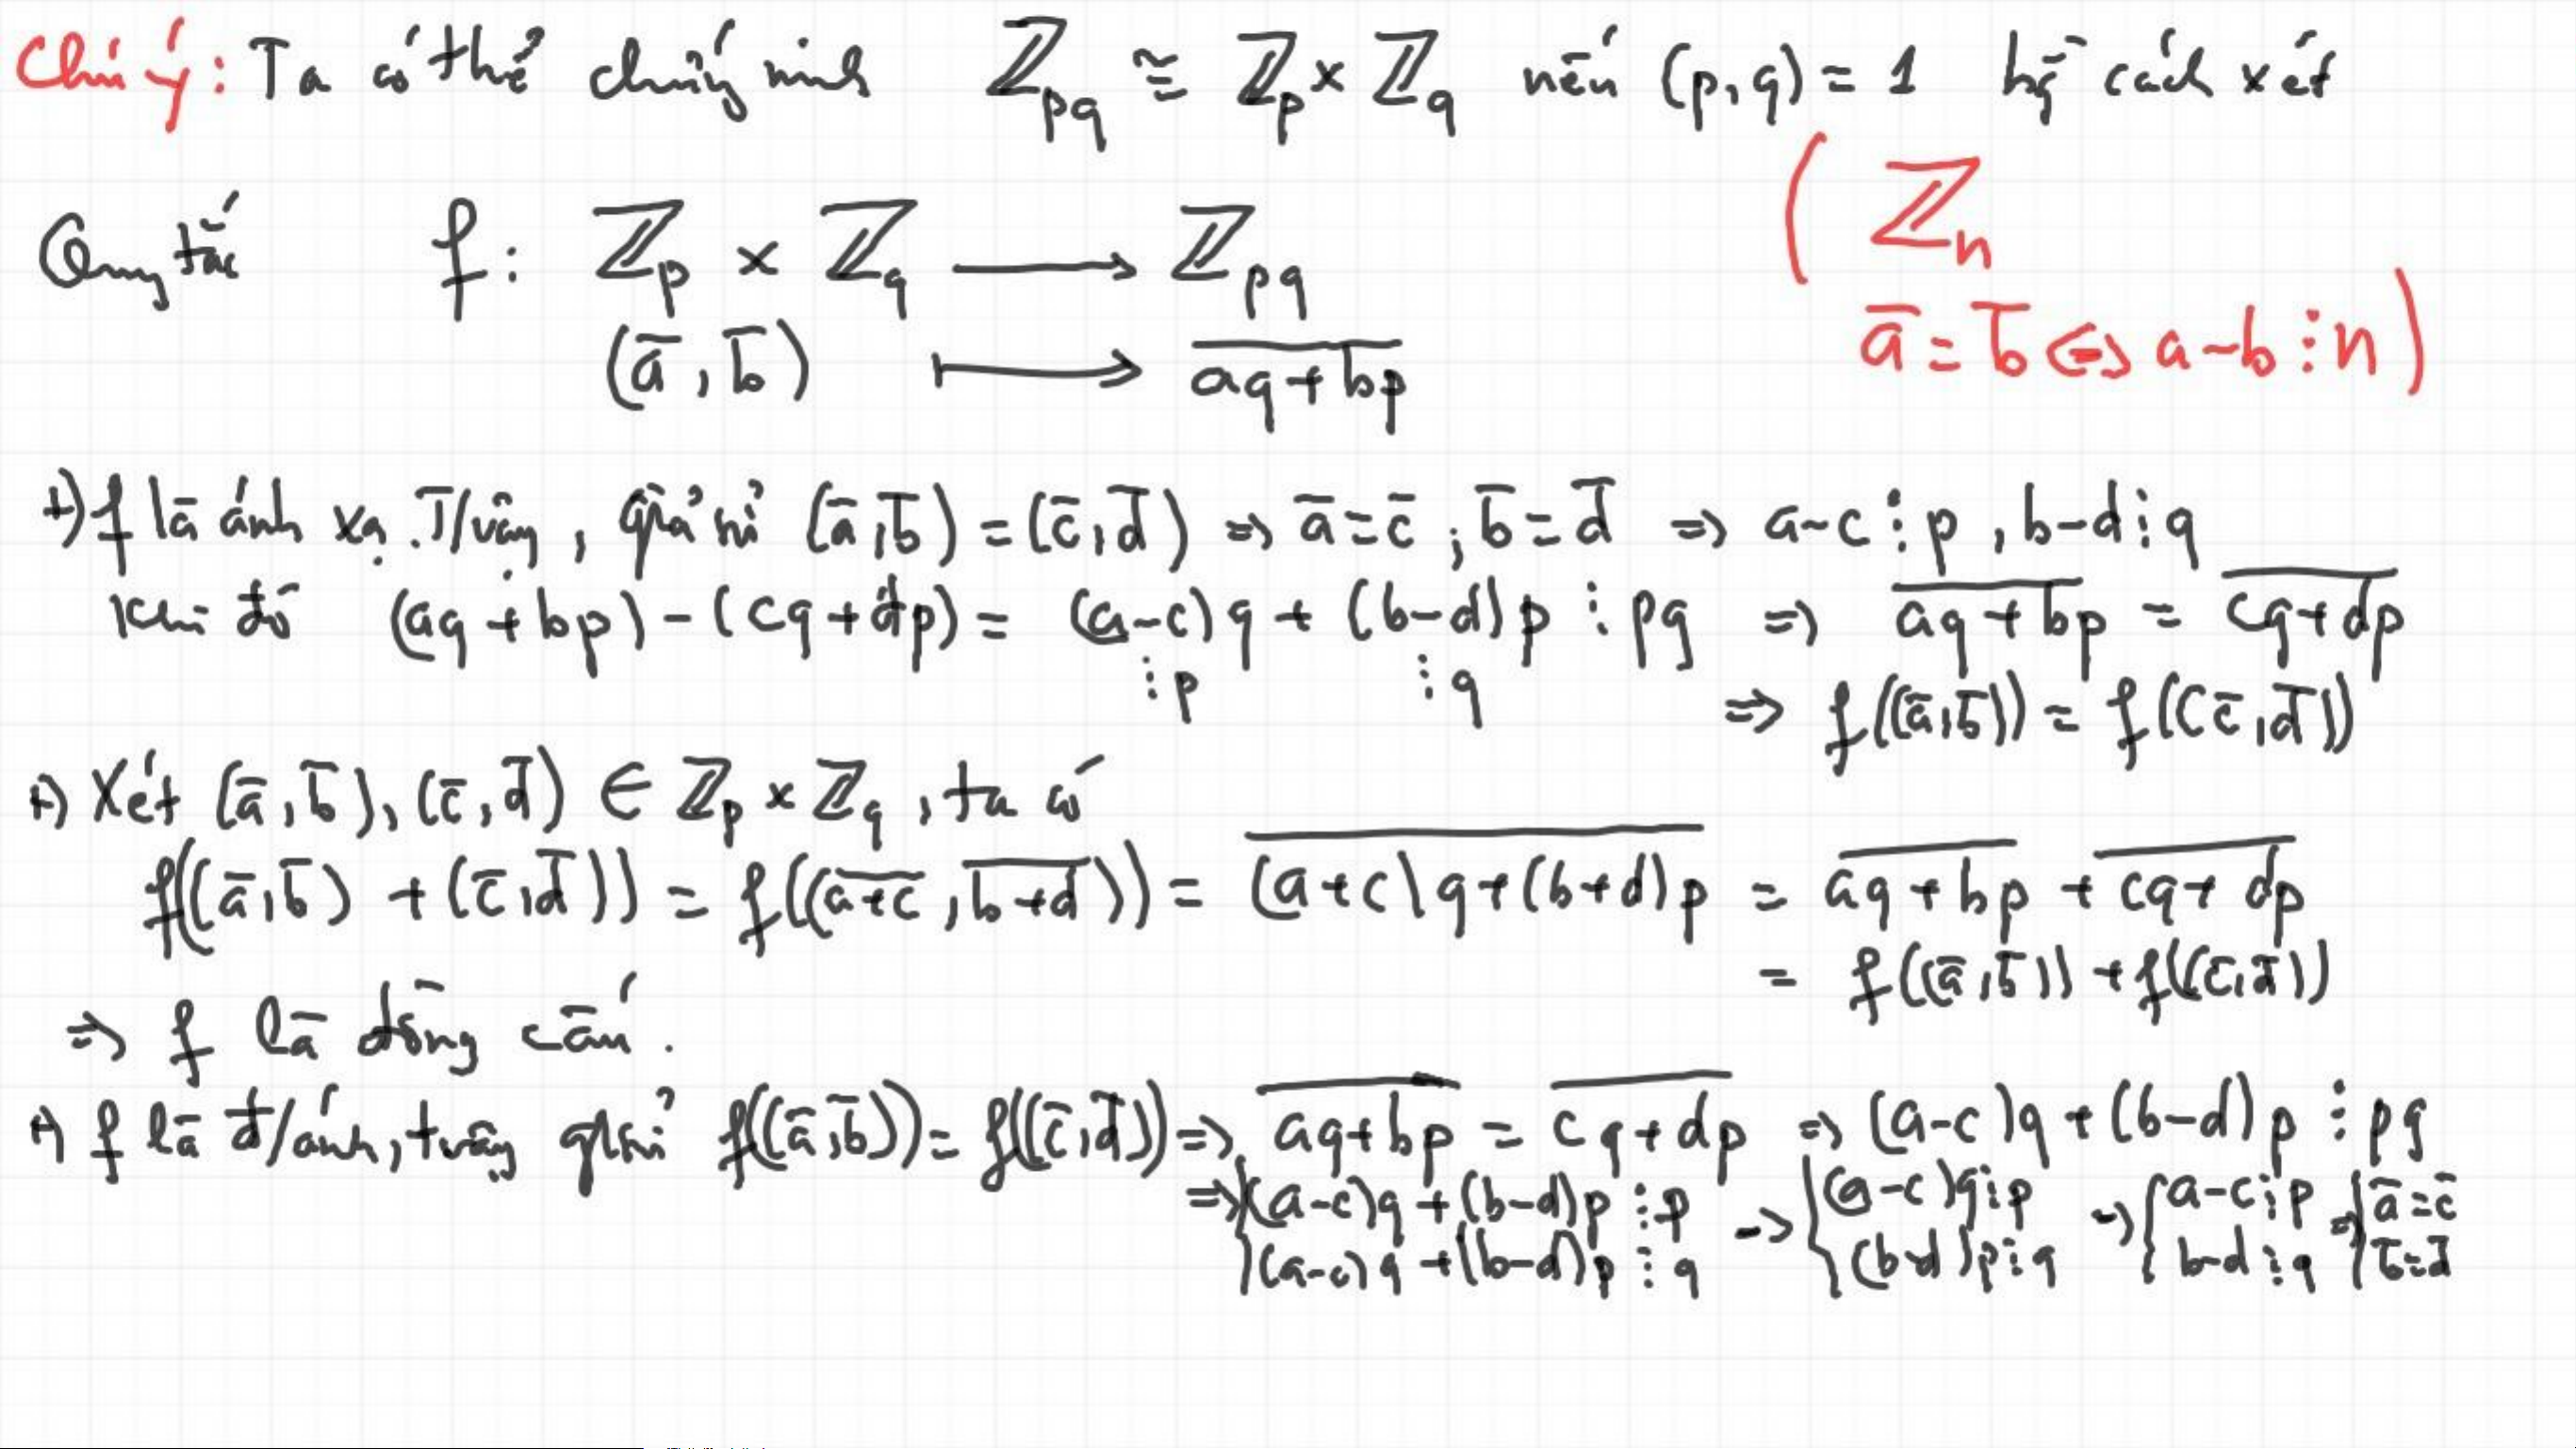 Chú ý: Ta có thể chứng minh ℤ_pq ≅ ℤ_p × ℤ_q nếu (p,q) = 1 bằng cách xét
Quy tắc f: ℤ_p × ℤ_q ⟶ ℤ_pq
(a̅, b̅) ⟼ \overline{aq+bp}
(ℤ_n
a̅ = b̅ ⇔ a-b ⋮ n)
+) f là ánh xạ. T/vậy, giả sử (a̅,b̅) = (c̅,d̅) ⇒ a̅ = c̅ ; b̅ = d̅ ⇒ a-c ⋮ p , b-d ⋮ q
Khi đó (aq+bp) - (cq+dp) = (a-c)q + (b-d)p ⋮ pq ⇒ \overline{aq+bp} = \overline{cq+dp}
⋮ p ⋮ q
⇒ f((a̅,b̅)) = f((c̅,d̅))
+) Xét (a̅,b̅), (c̅,d̅) ∈ ℤ_p × ℤ_q , ta có
f((a̅,b̅) + (c̅,d̅)) = f((\overline{a+c}, \overline{b+d})) = \overline{(a+c)q+(b+d)p} = \overline{aq+bp} + \overline{cq+dp}
= f((a̅,b̅)) + f((c̅,d̅))
⇒ f là đồng cấu.
+) f là đ/ánh, t/vậy g/sử f((a̅,b̅)) = f((c̅,d̅)) ⇒ \overline{aq+bp} = \overline{cq+dp} ⇒ (a-c)q + (b-d)p ⋮ pq
⇒ { (a-c)q + (b-d)p ⋮ p → { (a-c)q ⋮ p → { a-c ⋮ p ⇒ { a̅ = c̅
(a-c)q + (b-d)p ⋮ q (b-d)p ⋮ q b-d ⋮ q b̅ = d̅